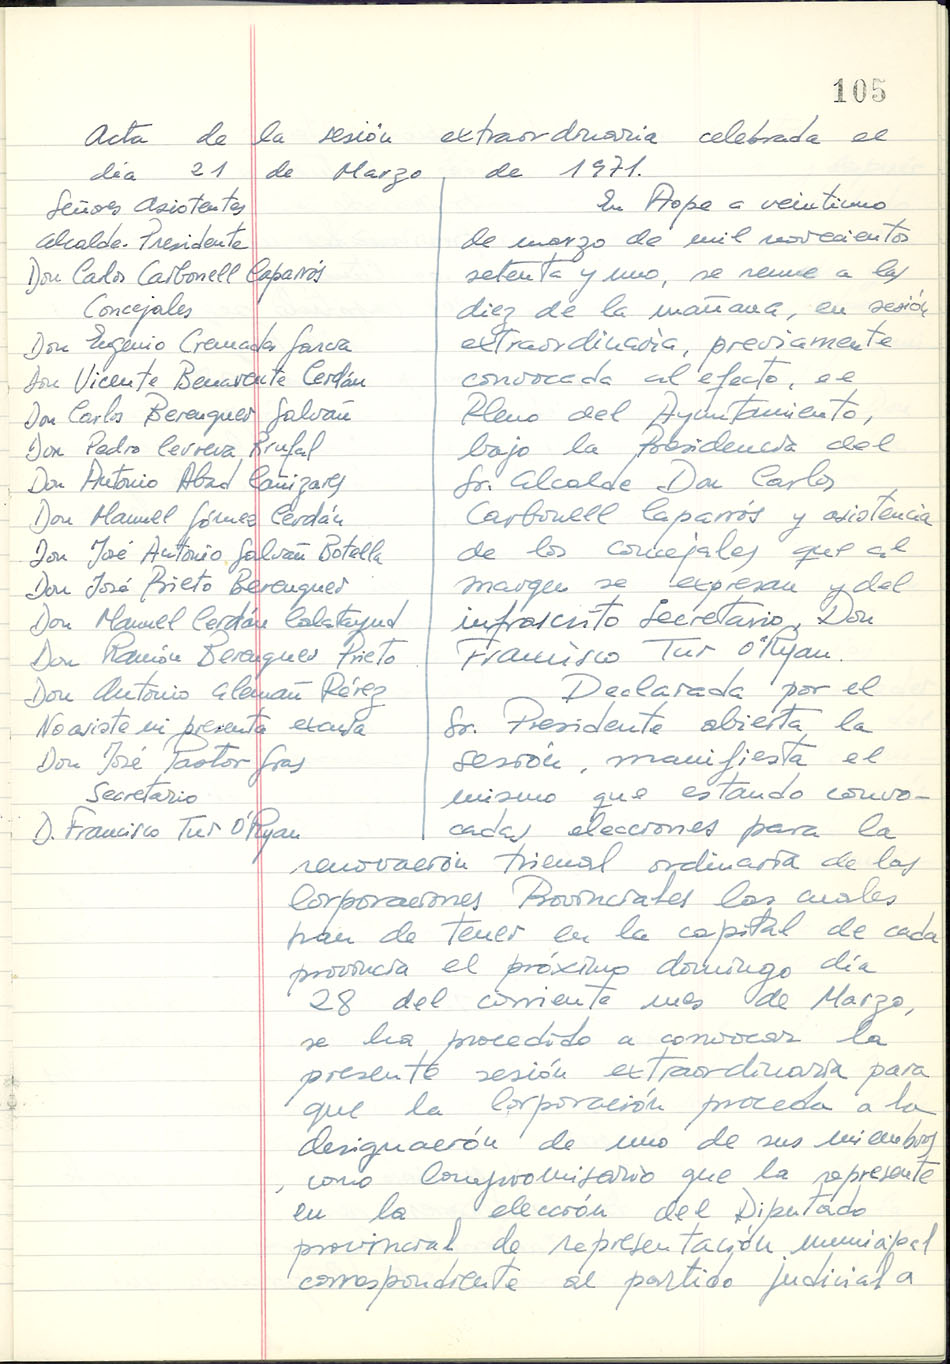 105
Acta de la sesión extraordinaria celebrada el
día 21 de Marzo de 1971.
Señores Asistentes
Alcalde-Presidente
Don Carlos Carbonell Caparrós
Concejales
Don Eugenio Cremades Garcia
Don Vicente Benavente Cerdán
Don Carlos Berenguer Galvañ
Don Pedro Cervera Brufal
Don Antonio Abad Cañizares
Don Manuel Gómez Cerdán
Don José Antonio Galvañ Botella
Don José Prieto Berenguer
Don Manuel Cerdán Calatayud
Don Ramón Berenguer Prieto
Don Antonio Alemañ Pérez
No asiste ni presenta excusa
Don José Pastor Gras
Secretario
D. Francisco Tur O'Ryan
En Aspe a veintiuno
de marzo de mil novecientos
setenta y uno, se reune a las
diez de la mañana, en sesión
extraordinaria, previamente
convocada al efecto, el
Pleno del Ayuntamiento,
bajo la Presidencia del
Sr. Alcalde Don Carlos
Carbonell Caparrós y asistencia
de los concejales que al
margen se expresan y del
infrascrito Secretario, Don
Francisco Tur O'Ryan.
Declarada por el
Sr. Presidente abierta la
sesión, manifiesta el
mismo que estando convo-
cadas elecciones para la
renovación trienal ordinaria de las
Corporaciones Provinciales las cuales
han de tener en la capital de cada
provincia el próximo domingo día
28 del corriente mes de Marzo,
se ha procedido a convocar la
presente sesión extraordinaria para
que la Corporación proceda a la
designación de uno de sus miembros
, como Compromisario que la represente
en la elección del Diputado
provincial de representación municipal
correspondiente al partido judicial a